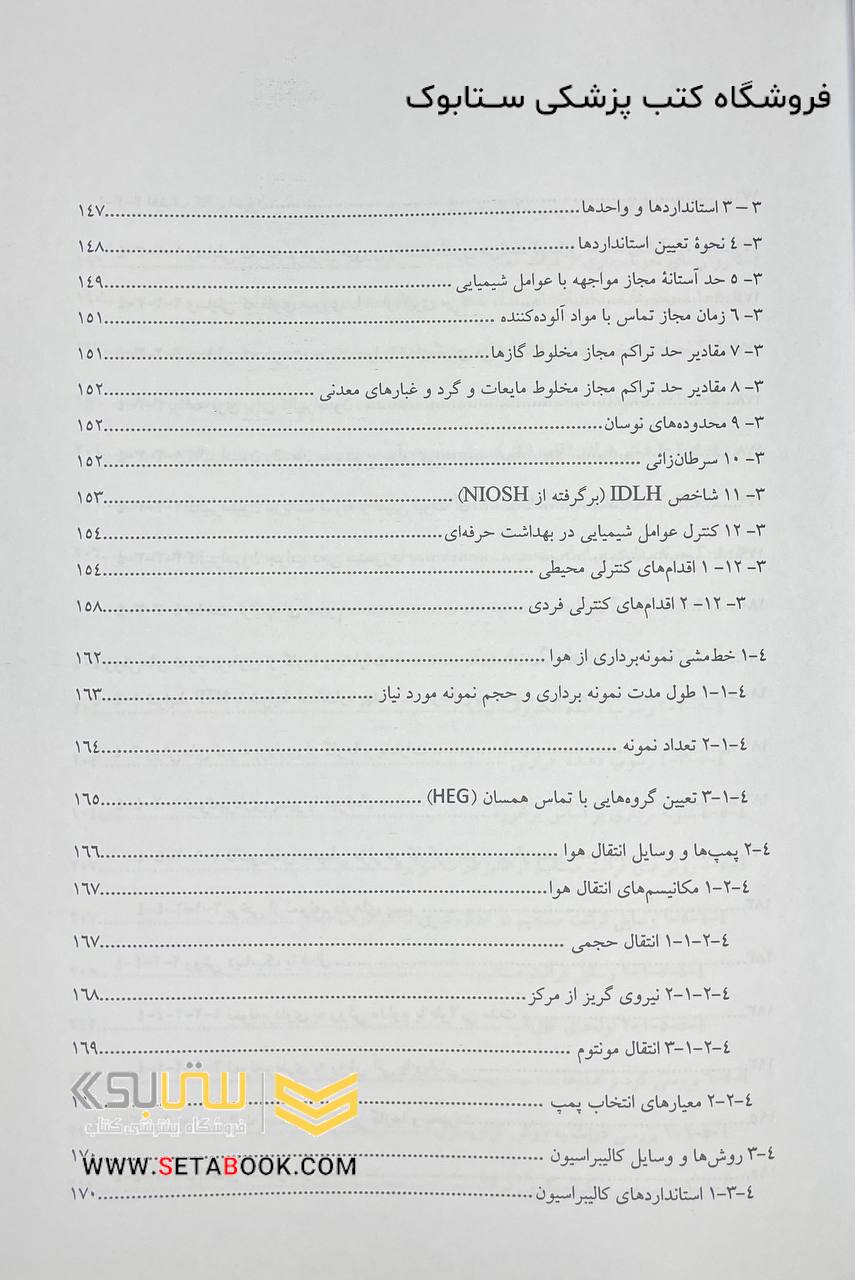 فروشگاه کتب پزشکی ستابوک
۳ – ۳ استانداردها و واحدها................................................................۱٤۷
۳- ٤ نحوهٔ تعیین استانداردها................................................................۱٤۸
۳- ٥ حد آستانهٔ مجاز مواجهه با عوامل شیمیایی................................................................۱٤۹
۳- ٦ زمان مجاز تماس با مواد آلوده‌کننده................................................................۱٥۱
۳- ۷ مقادیر حد تراکم مجاز مخلوط گازها................................................................۱٥۱
۳- ۸ مقادیر حد تراکم مجاز مخلوط مایعات و گرد و غبارهای معدنی................................................................۱٥۲
۳- ۹ محدوده‌های نوسان................................................................۱٥۲
۳- ۱۰ سرطان‌زائی................................................................۱٥۲
۳- ۱۱ شاخص IDLH (برگرفته از NIOSH)................................................................۱٥۳
۳- ۱۲ کنترل عوامل شیمیایی در بهداشت حرفه‌ای................................................................۱٥٤
۳- ۱۲- ۱ اقدام‌های کنترلی محیطی................................................................۱٥٤
۳- ۱۲- ۲ اقدام‌های کنترلی فردی................................................................۱٥۸
٤-۱ خط‌مشی نمونه‌برداری از هوا................................................................۱٦۲
٤-۱-۱ طول مدت نمونه برداری و حجم نمونه مورد نیاز................................................................۱٦۳
٤-۱-۲ تعداد نمونه................................................................۱٦٤
٤-۱-۳ تعیین گروه‌هایی با تماس همسان (HEG)................................................................۱٦٥
٤-۲ پمپ‌ها و وسایل انتقال هوا................................................................۱٦٦
٤-۲-۱ مکانیسم‌های انتقال هوا................................................................۱٦۷
٤-۲-۱-۱ انتقال حجمی................................................................۱٦۷
٤-۲-۱-۲ نیروی گریز از مرکز................................................................۱٦۸
٤-۲-۱-۳ انتقال مونتوم................................................................۱٦۹
٤-۲-۲ معیارهای انتخاب پمپ................................................................
ستابوک
فروشگاه اینترنتی کتاب
٤-۳ روش‌ها و وسایل کالیبراسیون................................................................۱۷۰
WWW.SETABOOK.COM
٤-۳-۱ استانداردهای کالیبراسیون................................................................۱۷۰